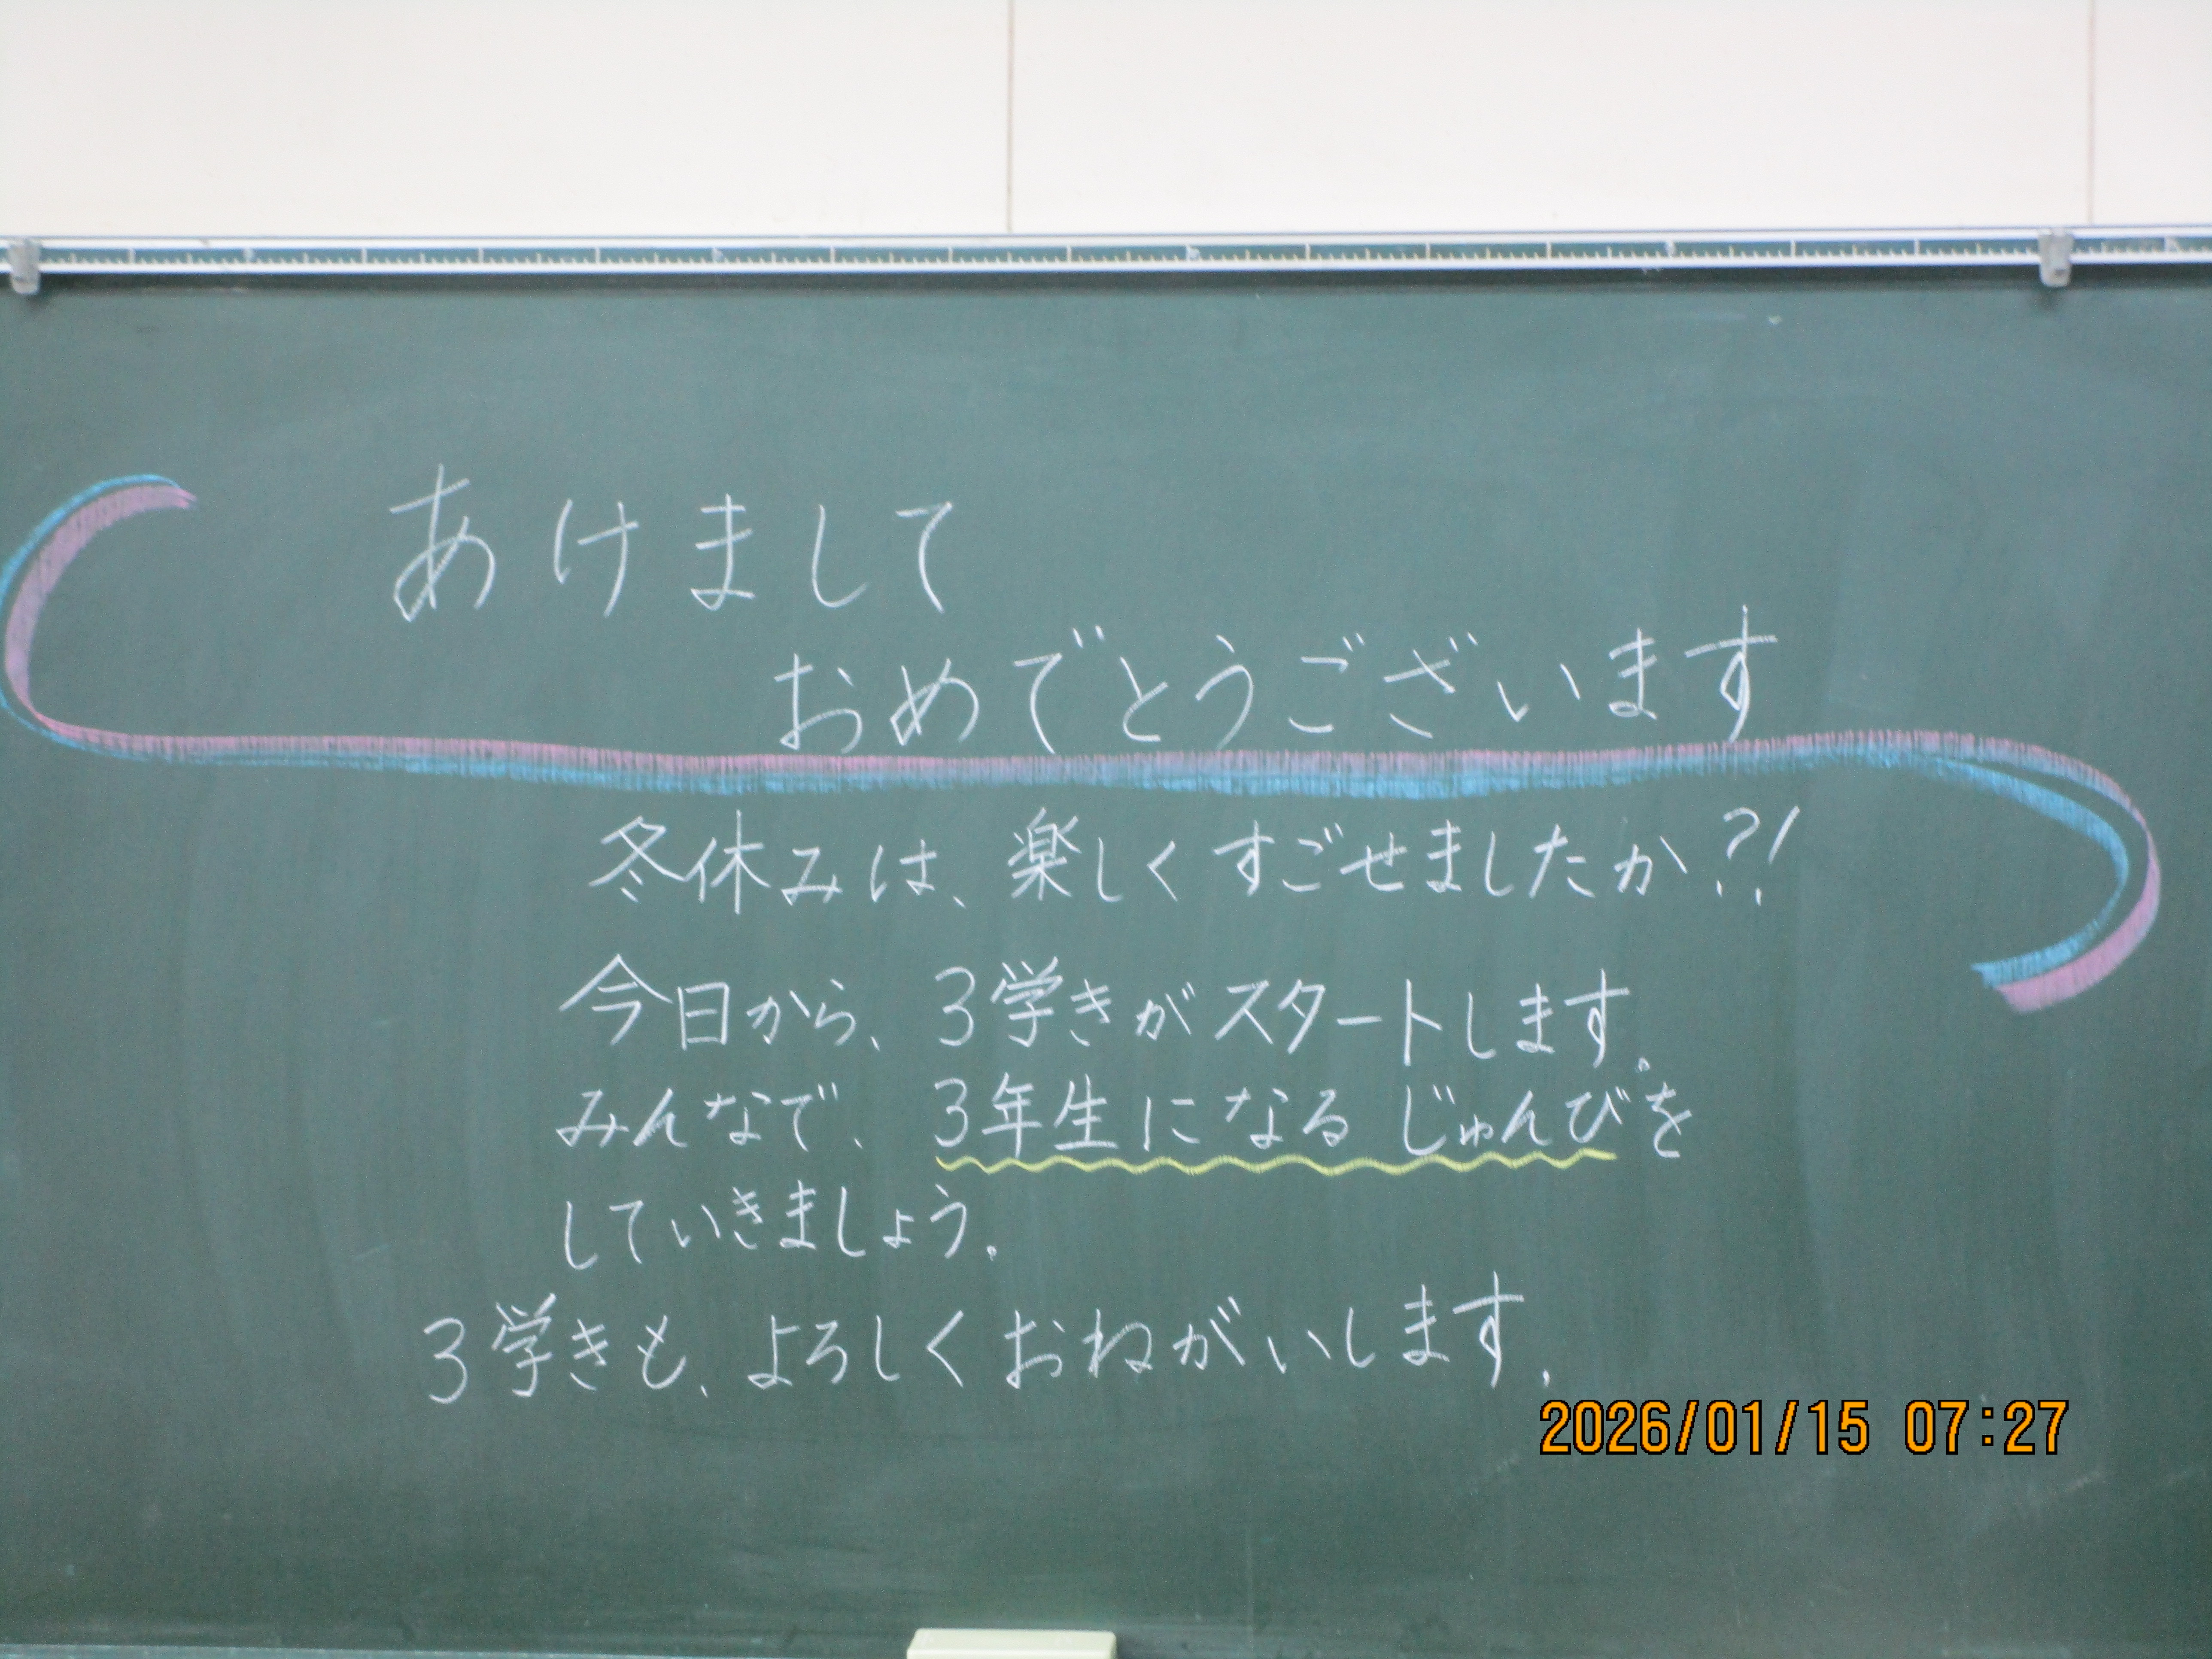 あけまして
おめでとうございます
冬休みは、楽しくすごせましたか?!
今日から、3学きがスタートします。
みんなで、3年生になるじゅんびを
していきましょう。
3学きも、よろしくおねがいします。
2026/01/15 07:27